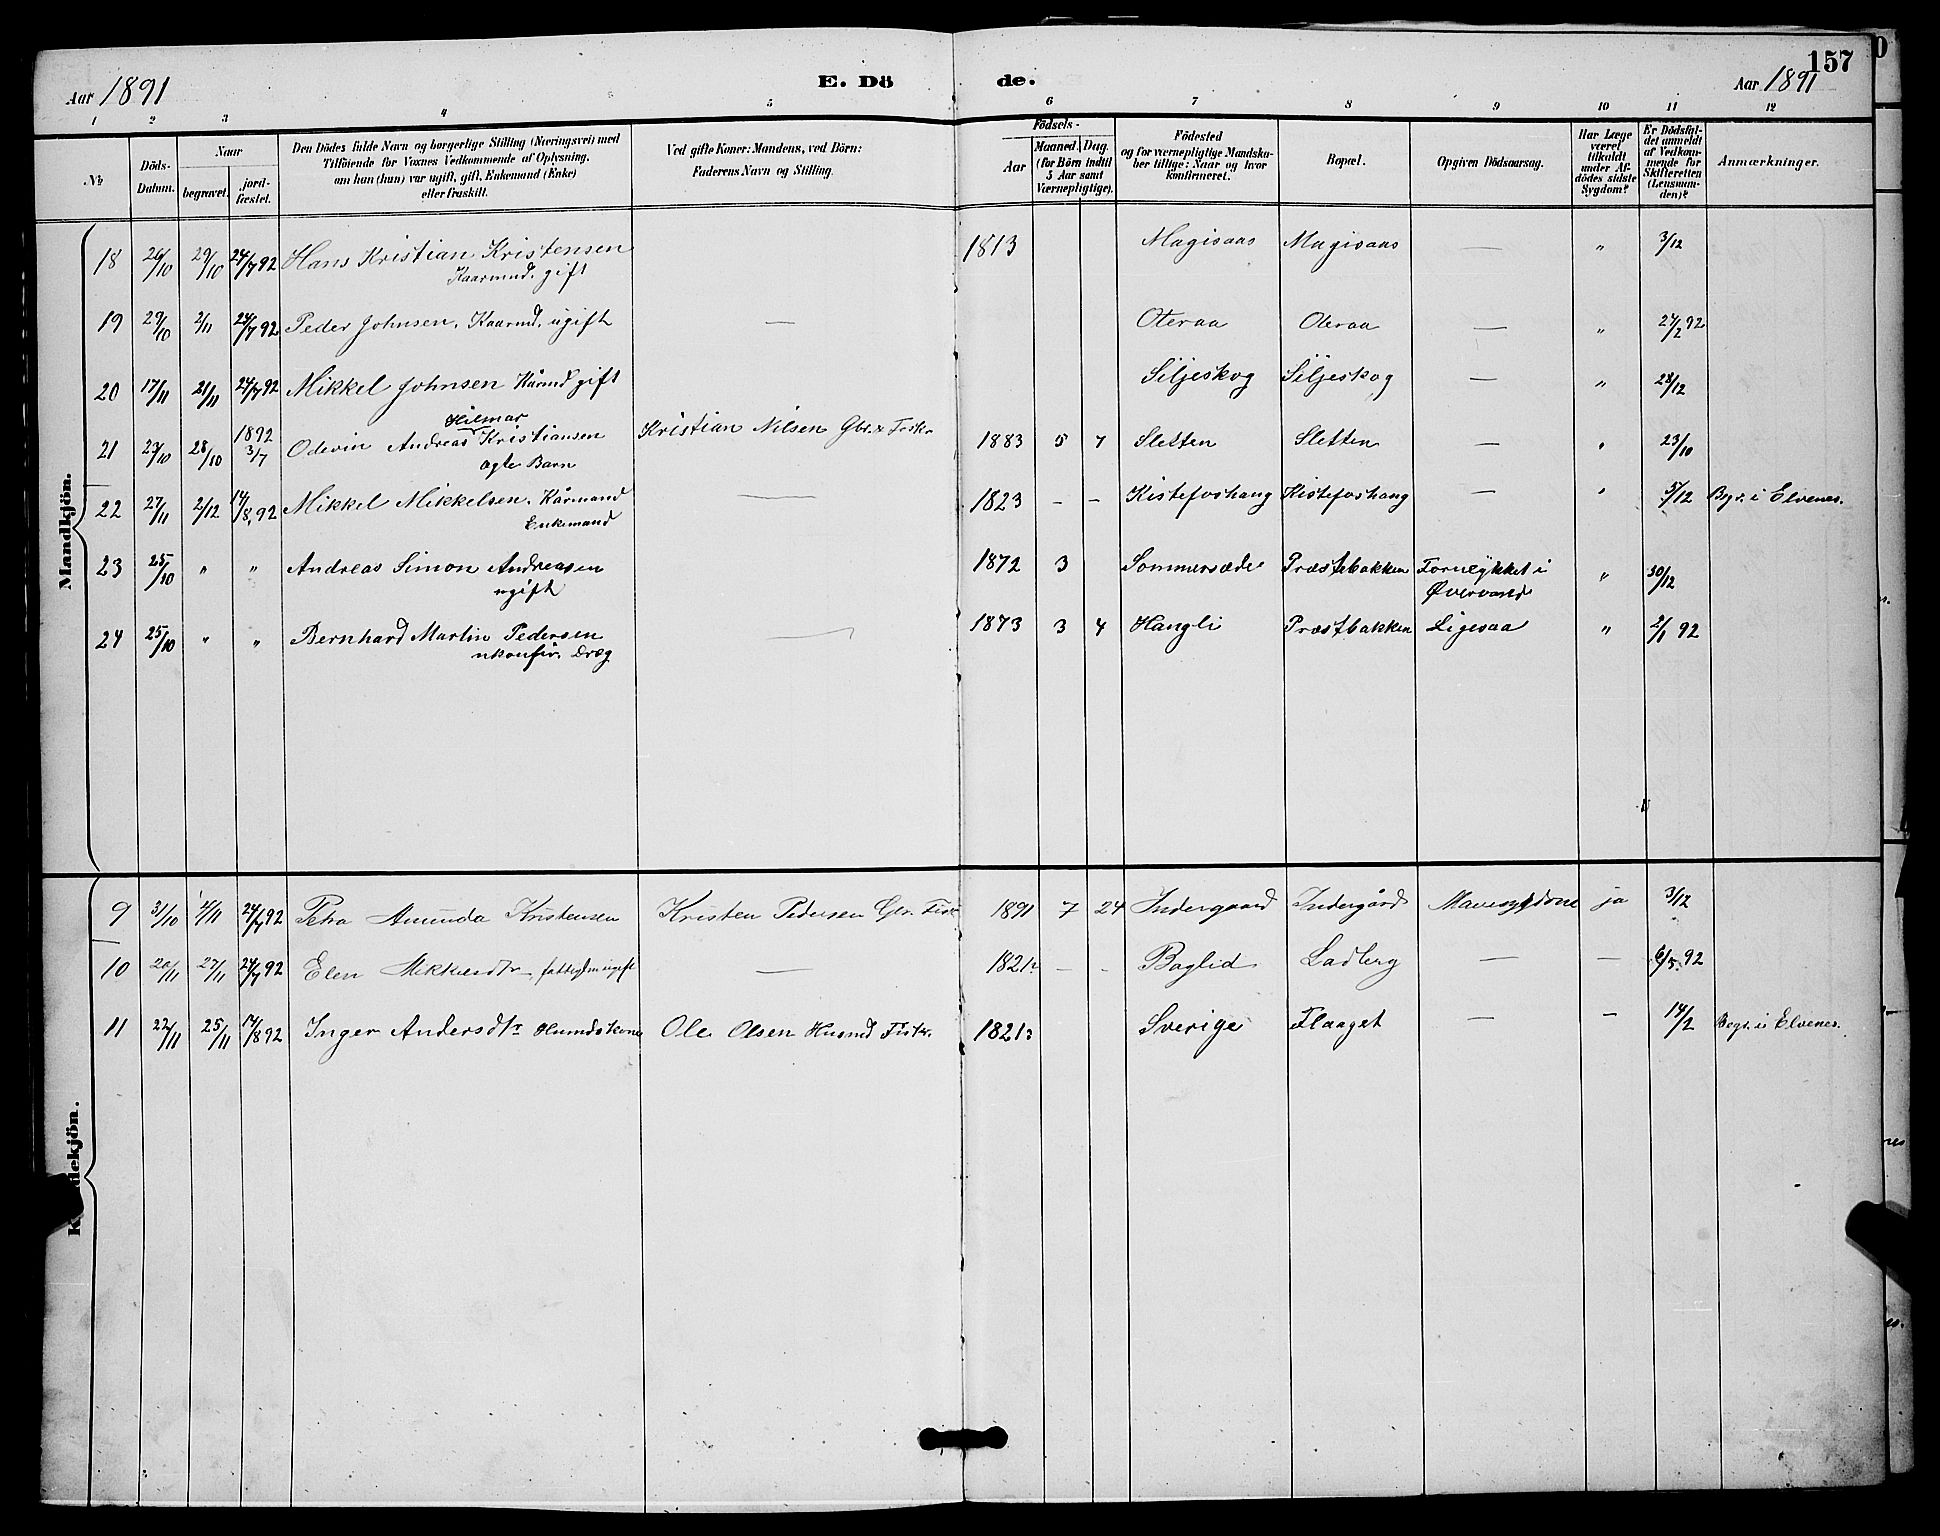 Aar 1891 E. Dö de. Aar 1891 157
1 2 3 4 5 6 7 8 9 10 11 12
№
Döds-Datum.
Naar
begravet.
jord-fæstet.
Den Dödes fulde Navn og borgerlige Stilling (Næringsvei) med
Tilföiende for Voxnes Vedkommende af Oplysning,
om han (hun) var ugift, gift, Enkemand (Enke)
eller fraskilt.
Ved gifte Koner: Mandens, ved Börn:
Faderens Navn og Stilling.
Födsels-
Aar
Maaned. Dag.
(for Börn indtil
5 Aar samt
Værnepligtige).
Födested
og for værnepligtige Mandska-
ber tillige: Naar og hvor
konfirmeret.
Bopæl.
Opgiven Dödsaarsag.
Har Læge
været
tilkaldt
under Af-
dödes sidste
Sygdom?
Er Dödsfal-
det anmeldt
af Vedkom-
mende for
Skifteretten
(Lensman-
den)?
Anmærkninger.
Mandkjön.
18 26/10 29/10 24/7 92 Hans Kristian Kristensen 1813 Magisaas Magisaas — " 3/12
Kaarmnd. gift
19 29/10 2/11 24/7 92 Peder Johnsen. Kaarnd. ugift — Oteraa Oteraa — " 27/2 92
20 17/11 21/11 24/7 92 Mikkel Johnsen Kårmd gift Siljeskog Siljeskog — " 28/12
Hilmar
21 23/10 28/10 1892 3/7 Odevin Andreas Kristiansen Kristian Nilsen Gbr. & Fisker 1883 5 7 Sletten Sletten — " 23/10
ægte Barn
22 27/11 2/12 14/8 92 Mikkel Mikkelsen. Kårmand — 1823 - - Kistefoshaug Kistefoshaug — " 5/12 Begr. i Elvenes.
Enkemand
23 25/10 " " Andreas Simon Andreasen 1872 3 Sommersæde Præstbakken Forulykket i " 30/12
ugift Øvervand
24 25/10 " " Bernhard Martin Pedersen — 1873 3 4 Hangli Præstbakken Ligesaa " 2/1 92
ukonfir. Dreg
Kvindekjön.
9 31/10 4/11 24/7 92 Petra Amunda Kristensen Kristen Pedersen Gbr. Fisk 1891 7 24 Indergaard Indergård Mavesygdom ja 3/12
10 20/11 27/11 24/7 92 Elen Mikkelsdtr fattiglm ugift — 1821 - - Baglid Ladberg — — 6/5 92
11 22/11 25/11 14/8 92 Inger Andersdtr Husmdskone Ole Olsen Husmd Fisker. 1821 Sverige Flaaget — — 14/2 Begr. i Elvenes.